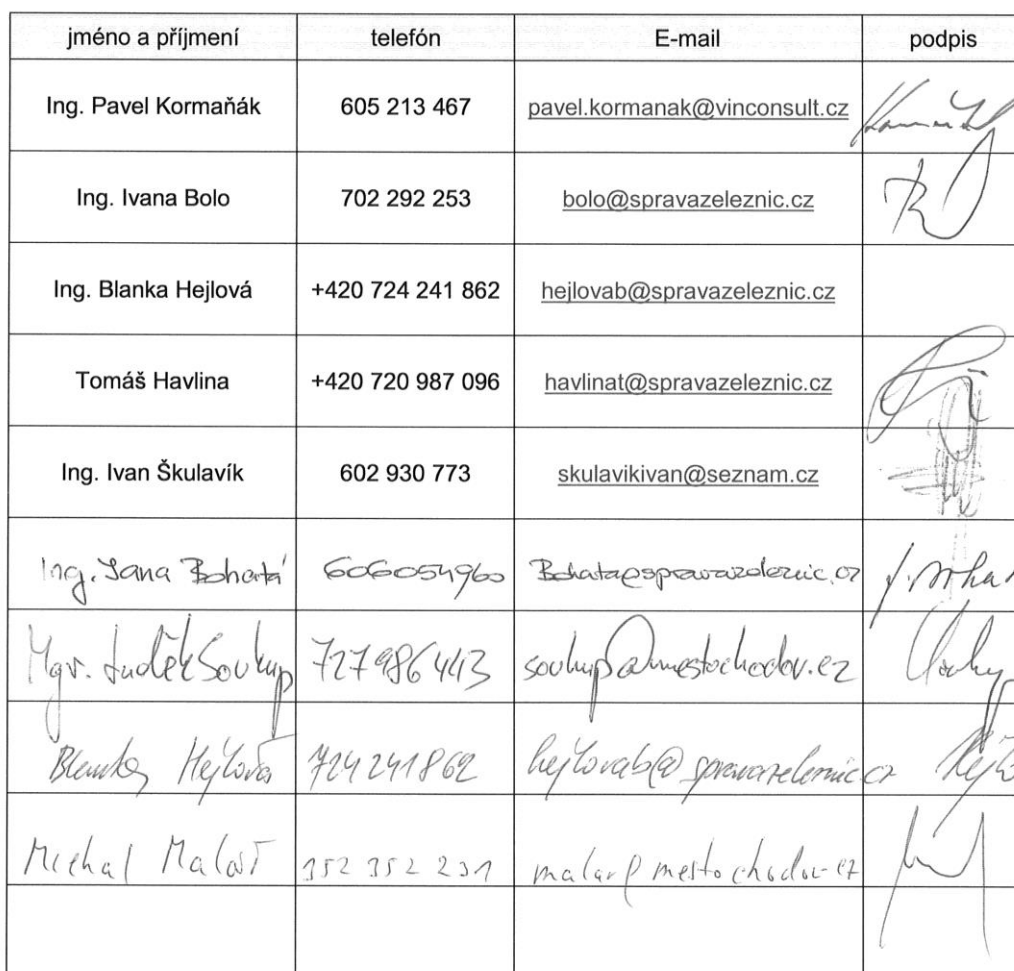 jméno a příjmení telefón E-mail podpis
Ing. Pavel Kormaňák 605 213 467 pavel.kormanak@vinconsult.cz
Ing. Ivana Bolo 702 292 253 bolo@spravazeleznic.cz
Ing. Blanka Hejlová +420 724 241 862 hejlovab@spravazeleznic.cz
Tomáš Havlina +420 720 987 096 havlinat@spravazeleznic.cz
Ing. Ivan Škulavík 602 930 773 skulavikivan@seznam.cz
Ing. Jana Bohatá 606054960 Bohata@spravazeleznic.cz
Mgr. Luděk Soukup 727986443 soukup@mestochodov.cz
Blanka Hejlová 724241862 hejlovab@spravazeleznic.cz
Michal 352 352 231